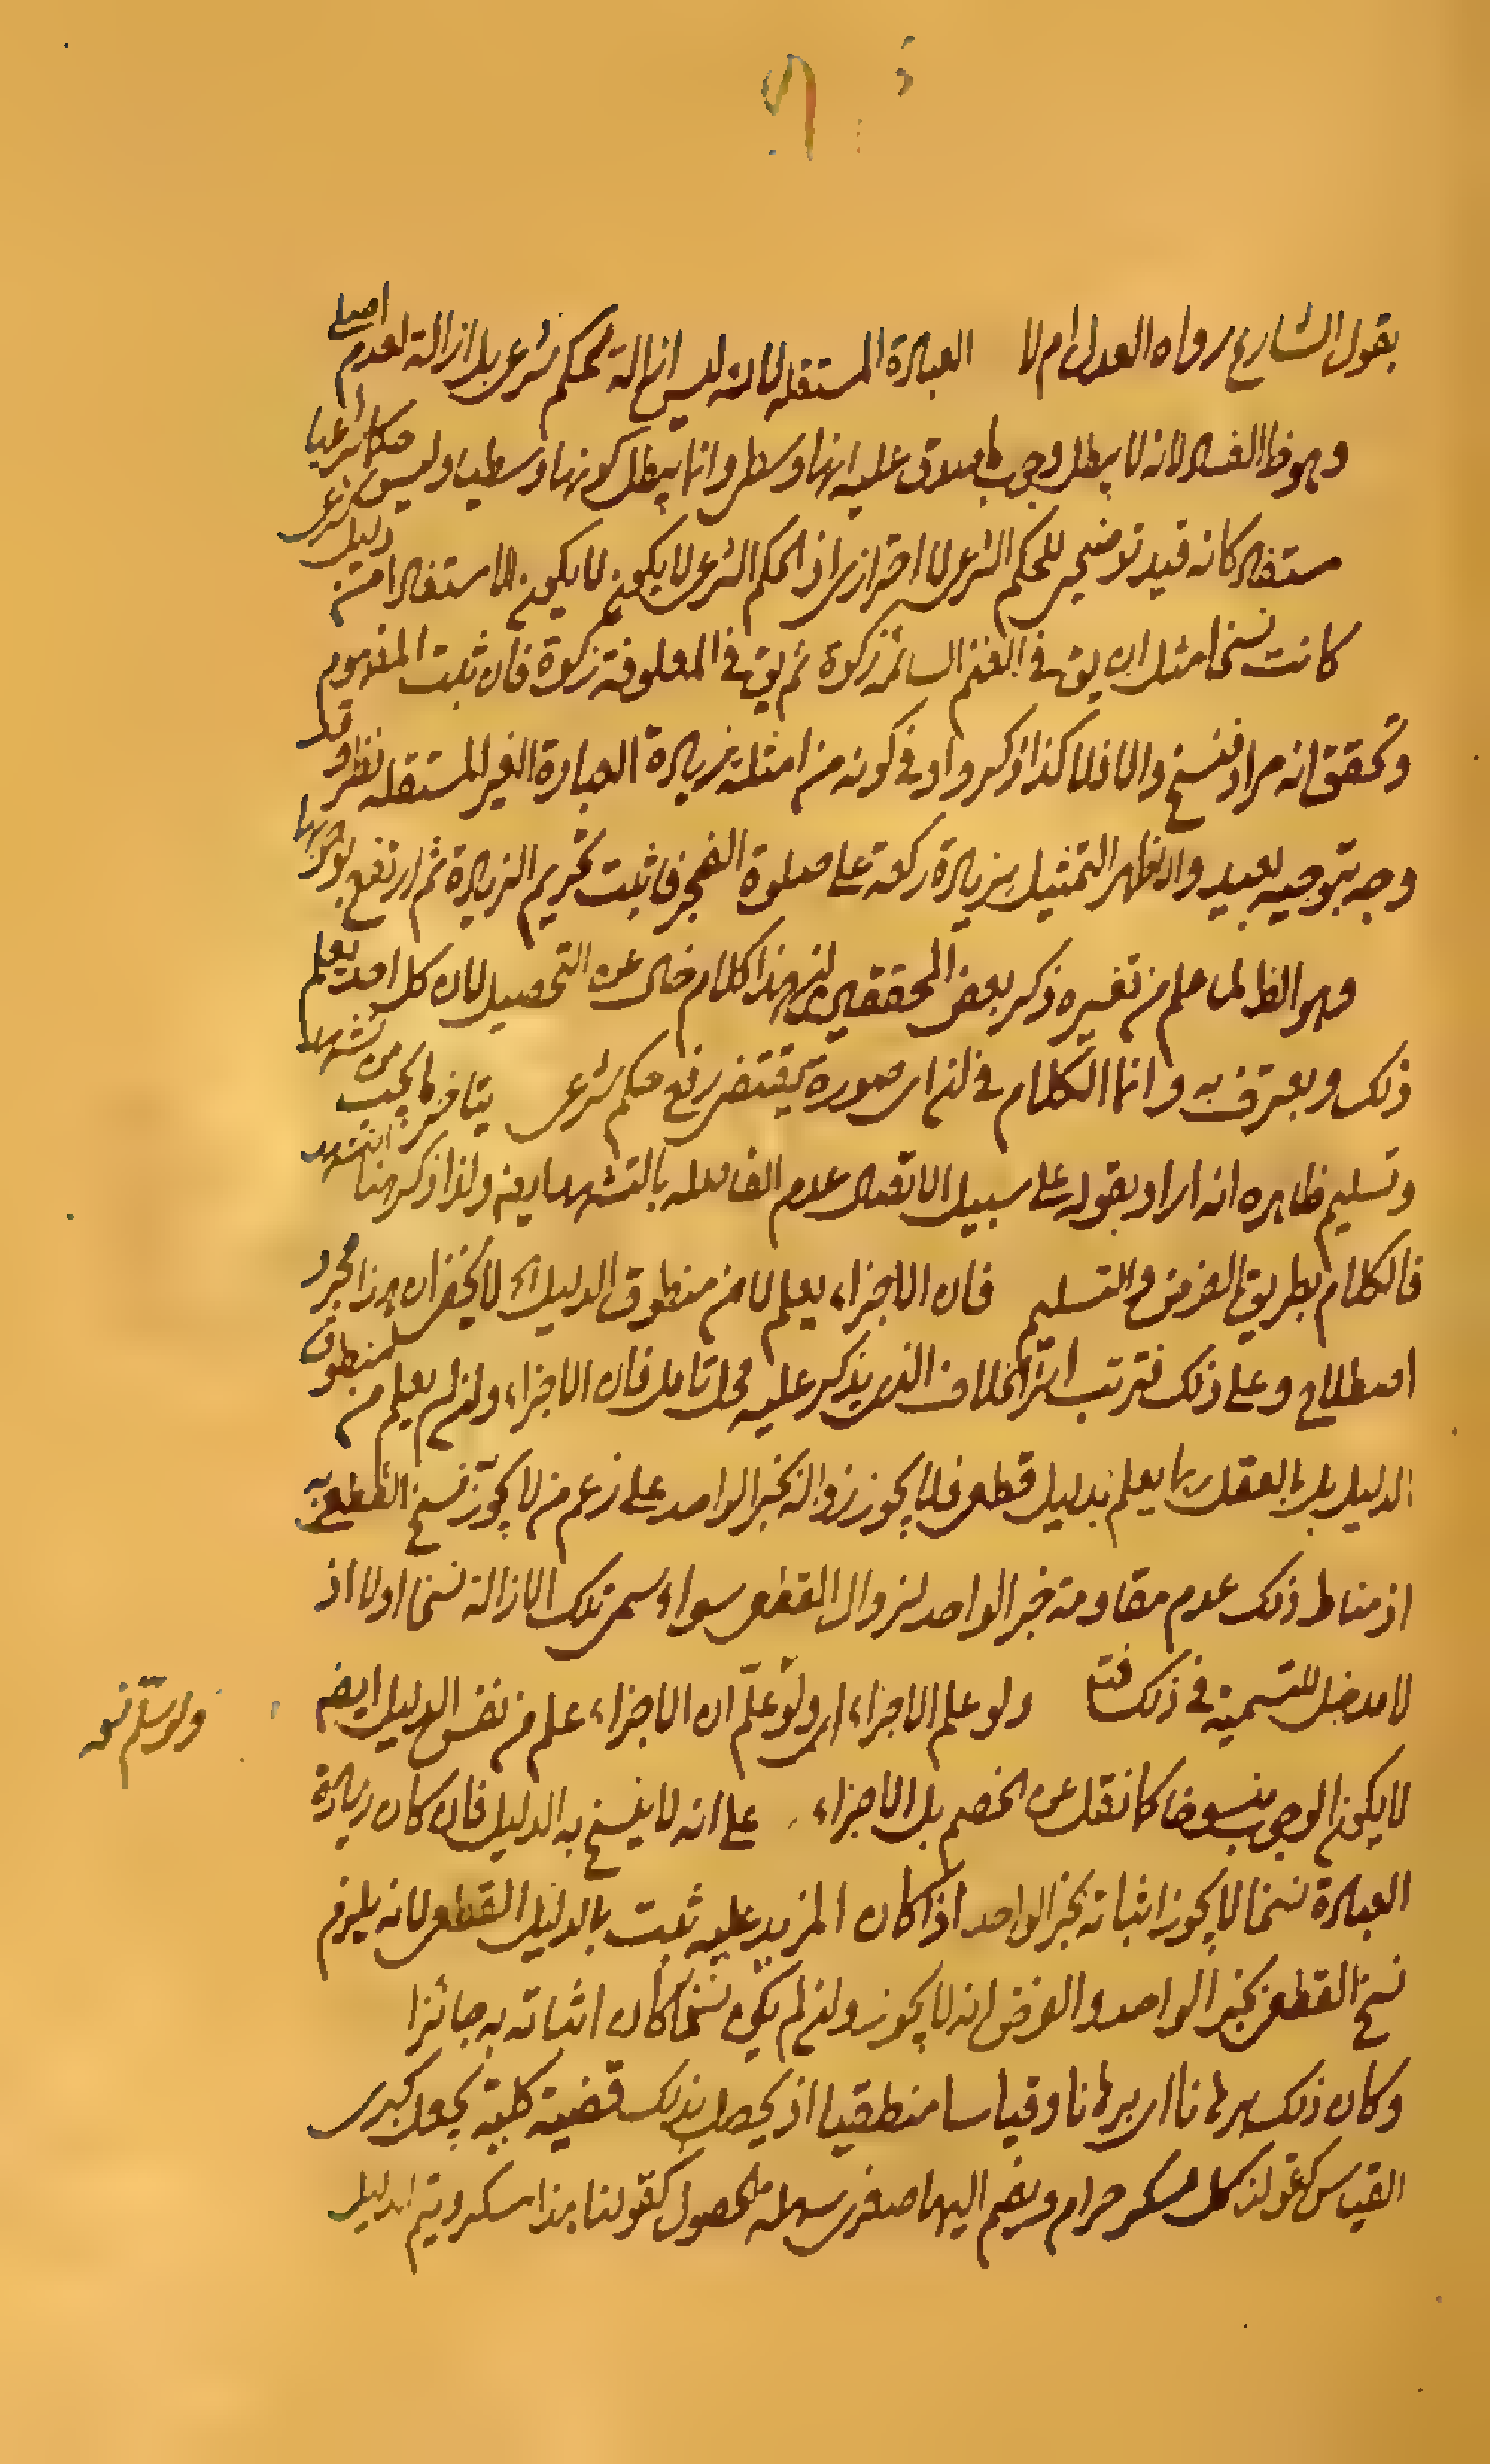 بقول الشارع رواه العدل ام لا العبادة المستقله لانه ليس ازالة لحكم شرعى بل ازالة لعدم اصلى
وهو ظ الفساد لانه لا يبطل وجوب ما صدق عليه انها وسطى وانما يبطل كونها وسطيا وليس حكما شرعيا
مستفاد كانه قيد توضيحى للحكم الشرعى لا احترازى اذ الحكم الشرعى لا يكون لا يكون الا مستفادا من دليل شرعى
كانت نسخا مثل ان يق فى الغنم السائمة زكوة ثم يق فى المعلوفة زكوة فان ثبت المفهوم
وتحقق انه مراد فنسخ والا فلا كذا ذكروا وفى كونه من امثلة زيادة العبادة الغير المستقله نظر وقد
وجه بتوجيه بعيد والاظهر التمثيل بزيادة ركعة على صلوة الفجر فاثبت تحريم الزيادة ثم ارتفع بوجوبها
وهو الظ لما علم من تفسيره ذكر بعض المحققين ان هذا كلام خال عن التحصيل لان كل احد يعلم
ذلك ويعترف به وانما الكلام فى ان اى صورة يقتضى رفع حكم شرعى يتأخر ما يجب من تشهد
وتسليم ظاهره انه اراد بقوله على سبيل الاتصال عدم الفاصله بالتشهد ايضا ولذا ذكر هنا التشهد
فالكلام بطريق الفرض والتسليم فان الاجزاء يعلم لا من منطوق الدليل اه لا يخفى ان هذا مجرد
اصطلاح وعلى ذلك فترتب اثر الخلاف الذى يذكر عليه محل تامل فان الاجزاء وان لم يعلم من منطوق
الدليل بل بالعقل ربما يعلم بدليل قطعى فلا يجوز زواله بخبر الواحد على زعم من لا يجوز نسخ القطعى به
اذ مناط ذلك عدم مقاومة خبر الواحد لزوال القطعى سواء سمى تلك الازالة نسخا اولا اذ
لا مدخل للتسمية فى ذلك فتا ولو علم الاجزاء اى ولو علم ان الاجزاء علم من نفس الدليل ايض
ولو سلم نسخه
لا يكون الوجوب منسوخا كما نقل عن الخصم بل الاجزاء على انه لا ينسخ به الدليل فان كان زيادة
العبادة نسخا لا يجوز اثباته بخبر الواحد اذا كان المزيد عليه ثبت بالدليل القطعى لانه يلزم
نسخ القطعى بخبر الواحد والفرض انه لا يجوز وان لم يكن نسخا كان اثباته به جائزا
وكان ذلك برهانا اى برهانا وقياسا منطقيا اذ يحصل بذلك قضية كلية يجعل كبرى
القياس كقولنا كل مسكر حرام ويضم اليها صغرى سهلة الحصول كقولنا هذا مسكر ويتم الدليل